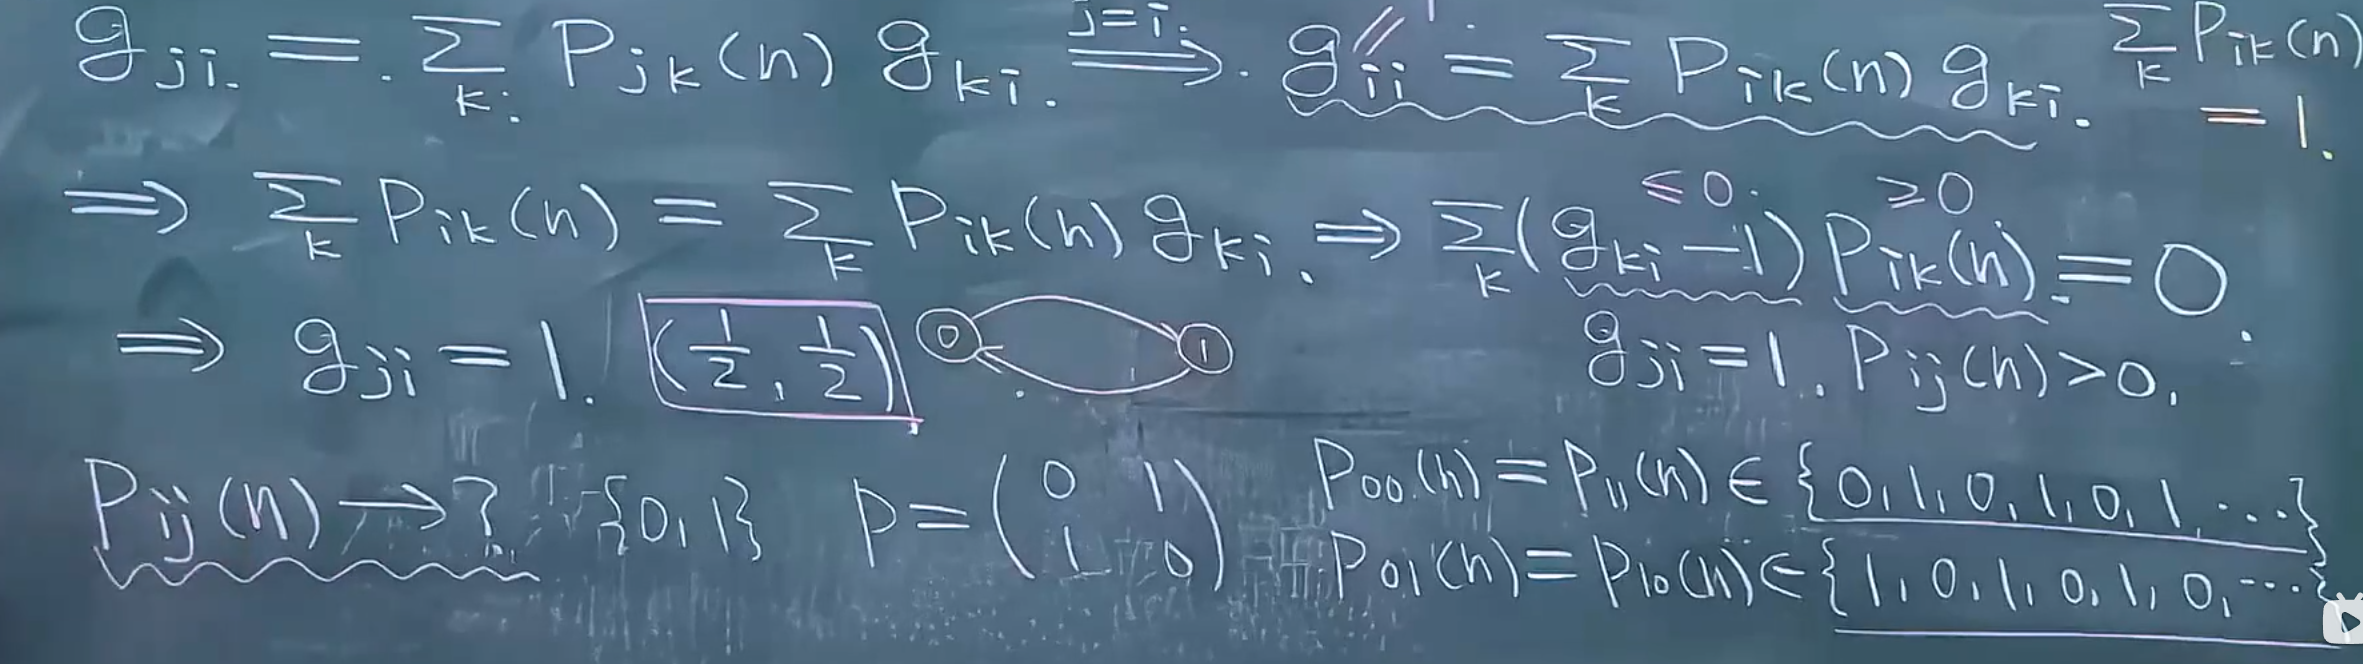 g_{ji} = \sum_k P_{jk}(n) g_{ki}. \xRightarrow{j=i.} g_{ii} = \sum_k P_{ik}(n) g_{ki}. \sum_k P_{ik}(n) = 1.
// 1
⇒ \sum_k P_{ik}(n) = \sum_k P_{ik}(n) g_{ki}. ⇒ \sum_k (g_{ki} - 1) P_{ik}(n) = 0.
≤0. ≥0
⇒ g_{ji} = 1. (\frac{1}{2}, \frac{1}{2}) 0 1 g_{ji} = 1. P_{ij}(n) > 0.
P_{ij}(n) → ? {0, 1} P = \begin{pmatrix} 0 & 1 \\ 1 & 0 \end{pmatrix} P_{00}(n) = P_{11}(n) ∈ {0, 1, 0, 1, 0, 1, ...}
P_{01}(n) = P_{10}(n) ∈ {1, 0, 1, 0, 1, 0, ...}